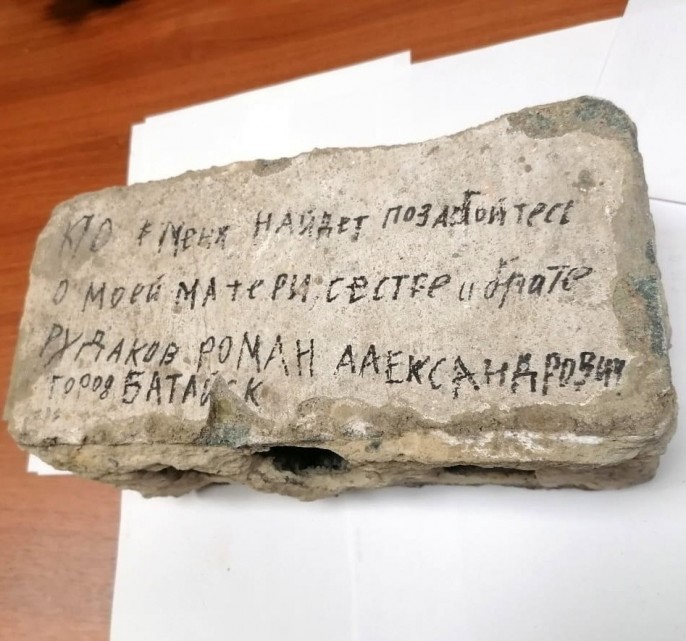 КТО меня НАЙДЕТ ПОЗАБОйтесь
О моей МАтеРИ, СЕСТРЕ и брате
РУДАКОВ РОМАН АЛЕКСАНДРОВИЧ
ГОРОД БАТАЙСК